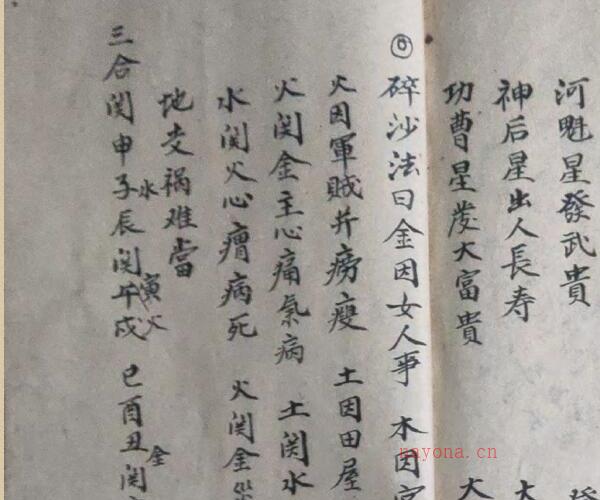 河魁星發武貴
神后星出人長寿
功曹星发大富貴 大
碎沙法曰金因女人事 木因
火因軍賊并痨瘦 土因田屋
火関金主心痛氣病 土関水
水関火心癗病死 火関金
地支祸难當
三合関申子辰関寅午戌 巳酉丑関
水 火 金
nayona.cn